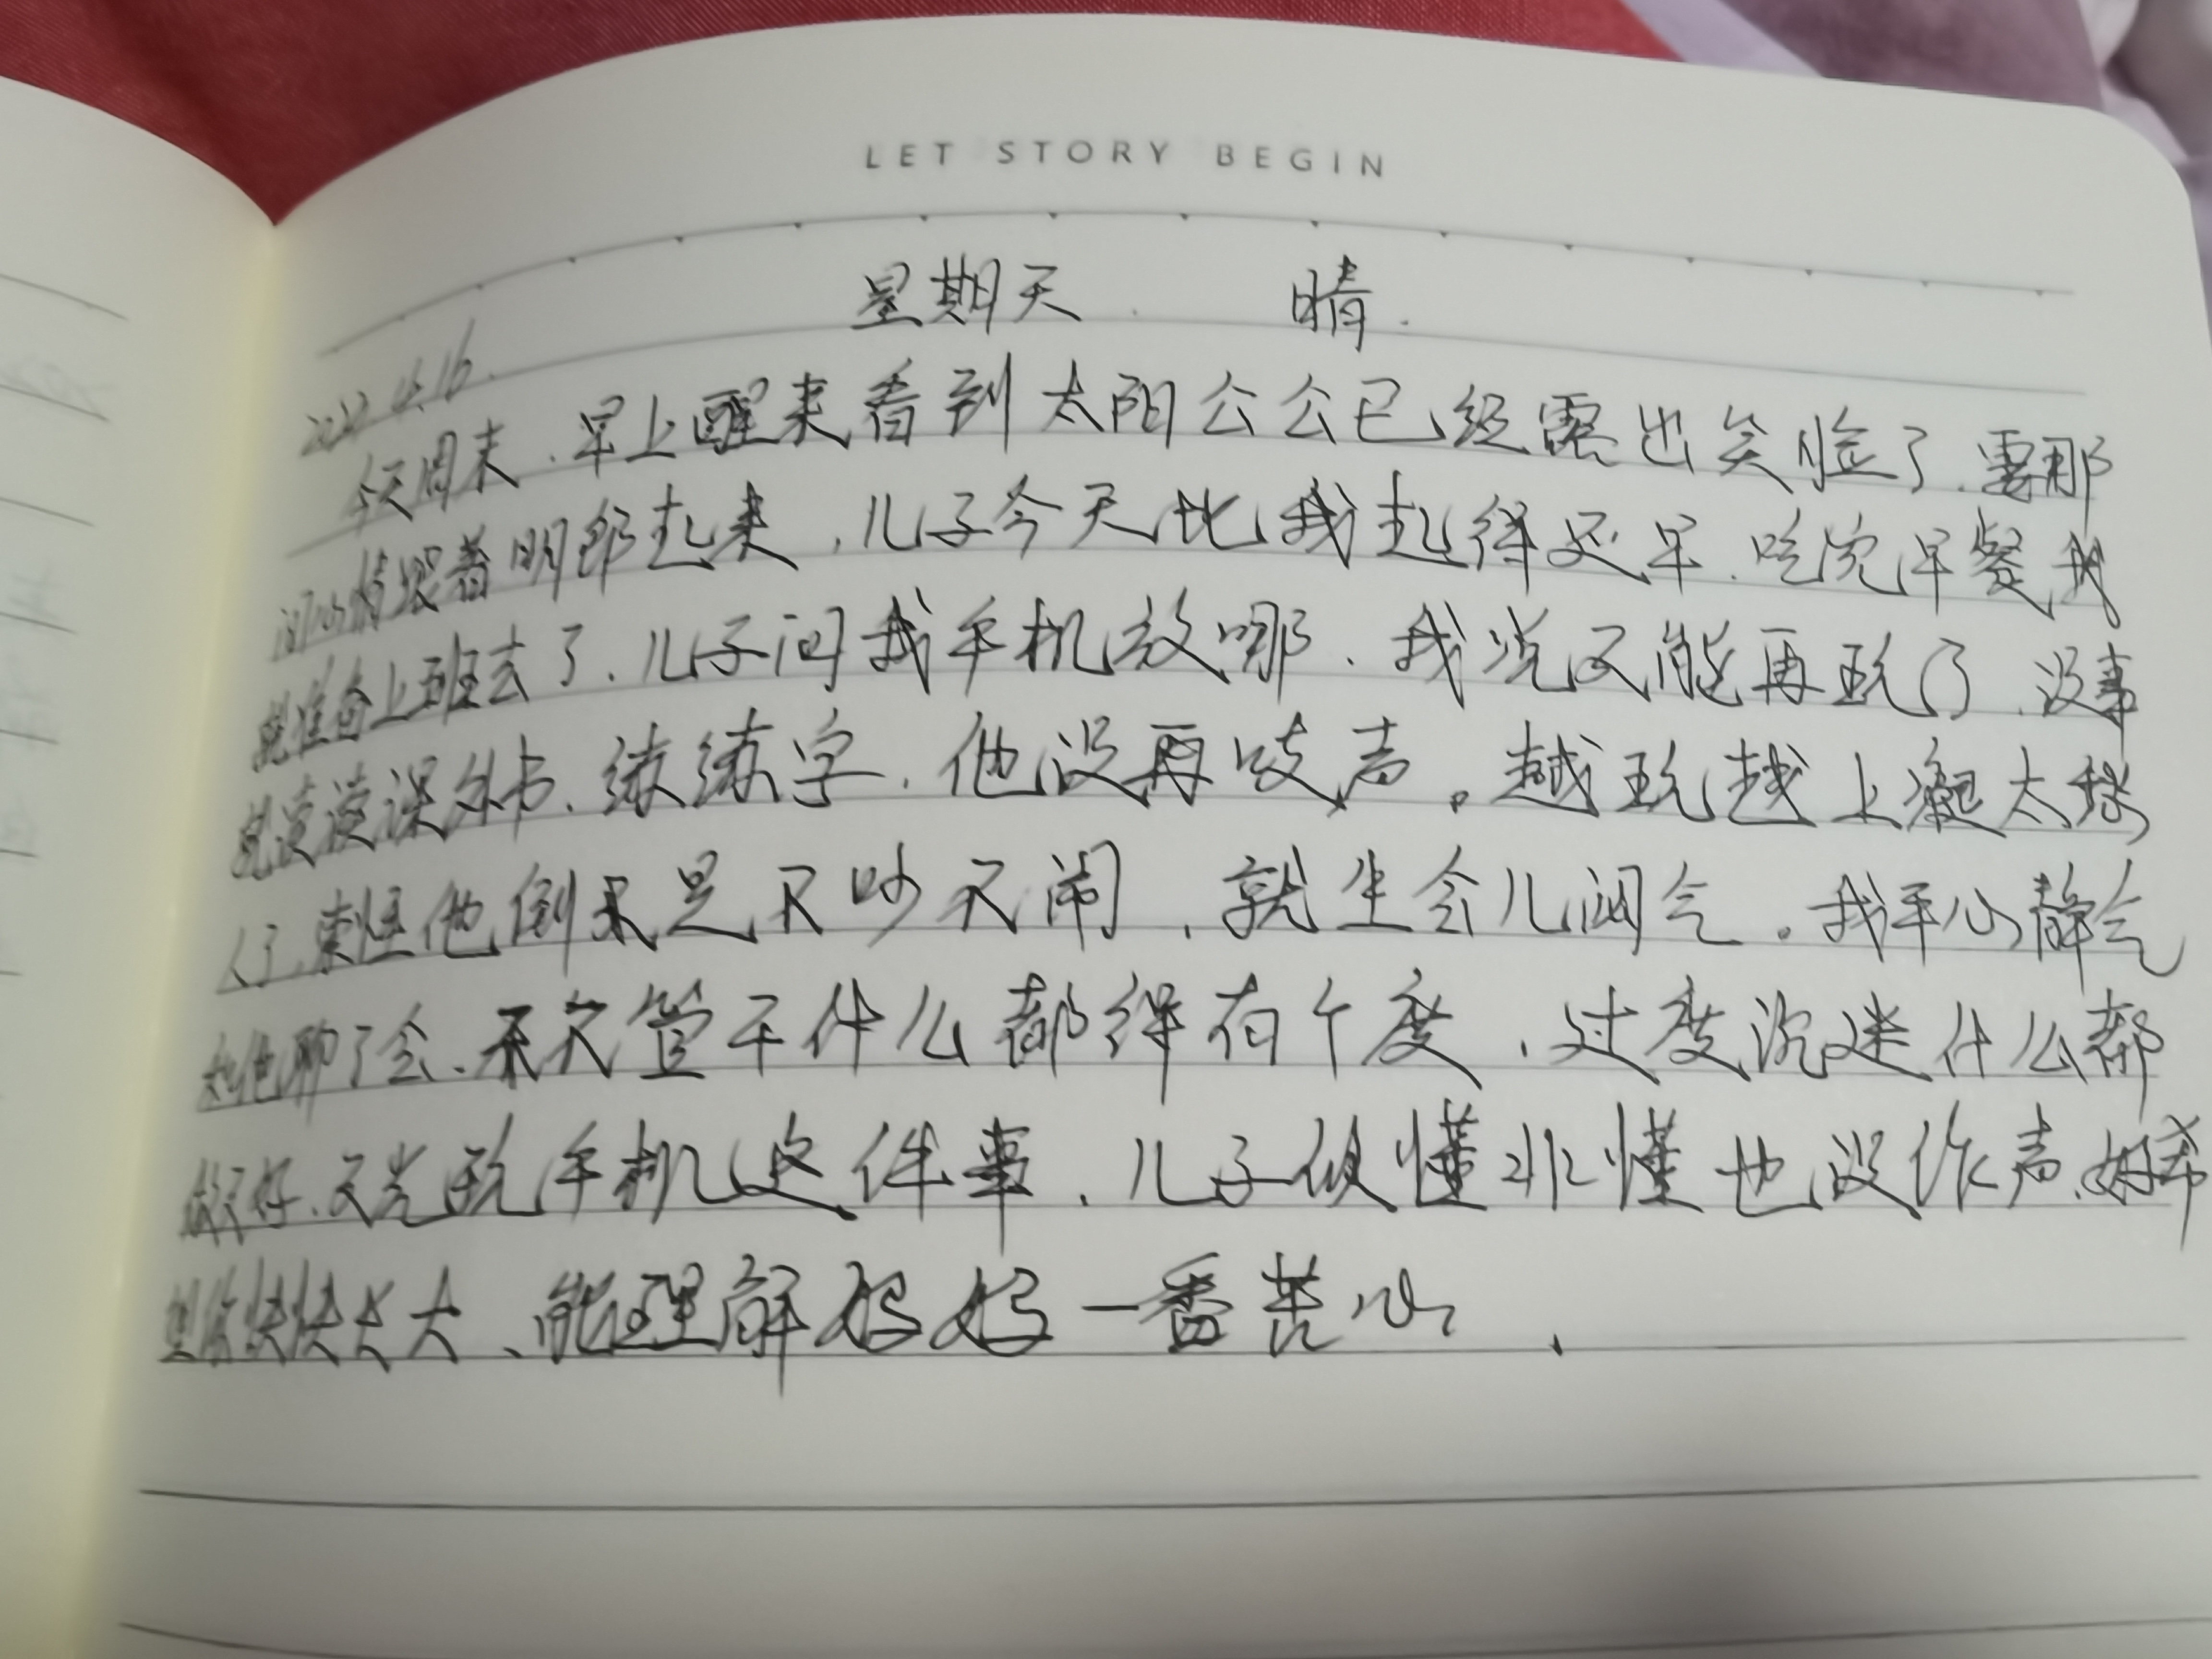 LET STORY BEGIN
星期天. 晴.
4.16.
今天周末.早上醒来看到太阳公公已经露出笑脸了.霎那
间心情跟着明郎起来,儿子今天比我起得还早.吃完早餐我
就准备上班去了.儿子问我手机放哪.我说不能再玩了.没事
就读读课外书、练练字,他没再吱声。越玩越上瘾太恼
人了.责怪他倒是不吵不闹,就生会儿闷气。我平心静气
和他聊了会、不管干什么都得有个度,过度沉迷什么都
做不好、不光玩手机这件事,儿子似懂非懂也没作声.好希
望你快快长大、能理解妈妈一番苦心.